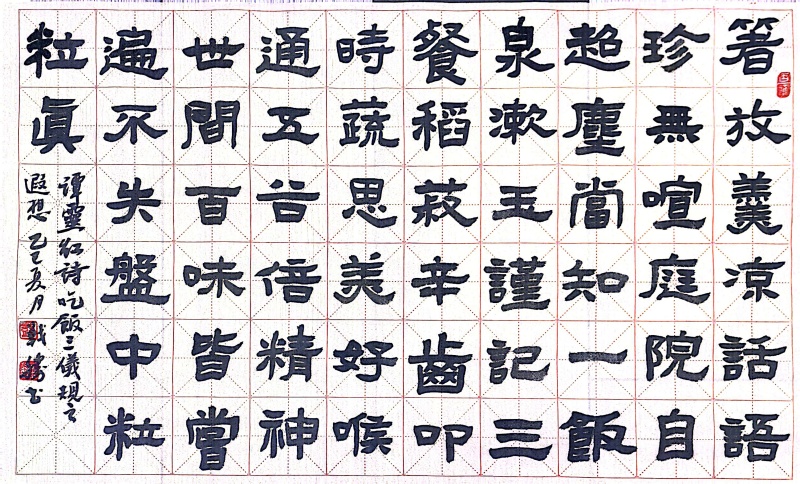 箸放羹凉話語
珍無喧庭院自
超塵當知一飯
泉漱玉謹記三
餐稻菽辛齒叩
時蔬思美好喉
通五谷倍精神
世間百味皆嘗
遍不失盤中粒
粒真
譚靈紅詩吃飯三儀現之
遐想乙巳夏月